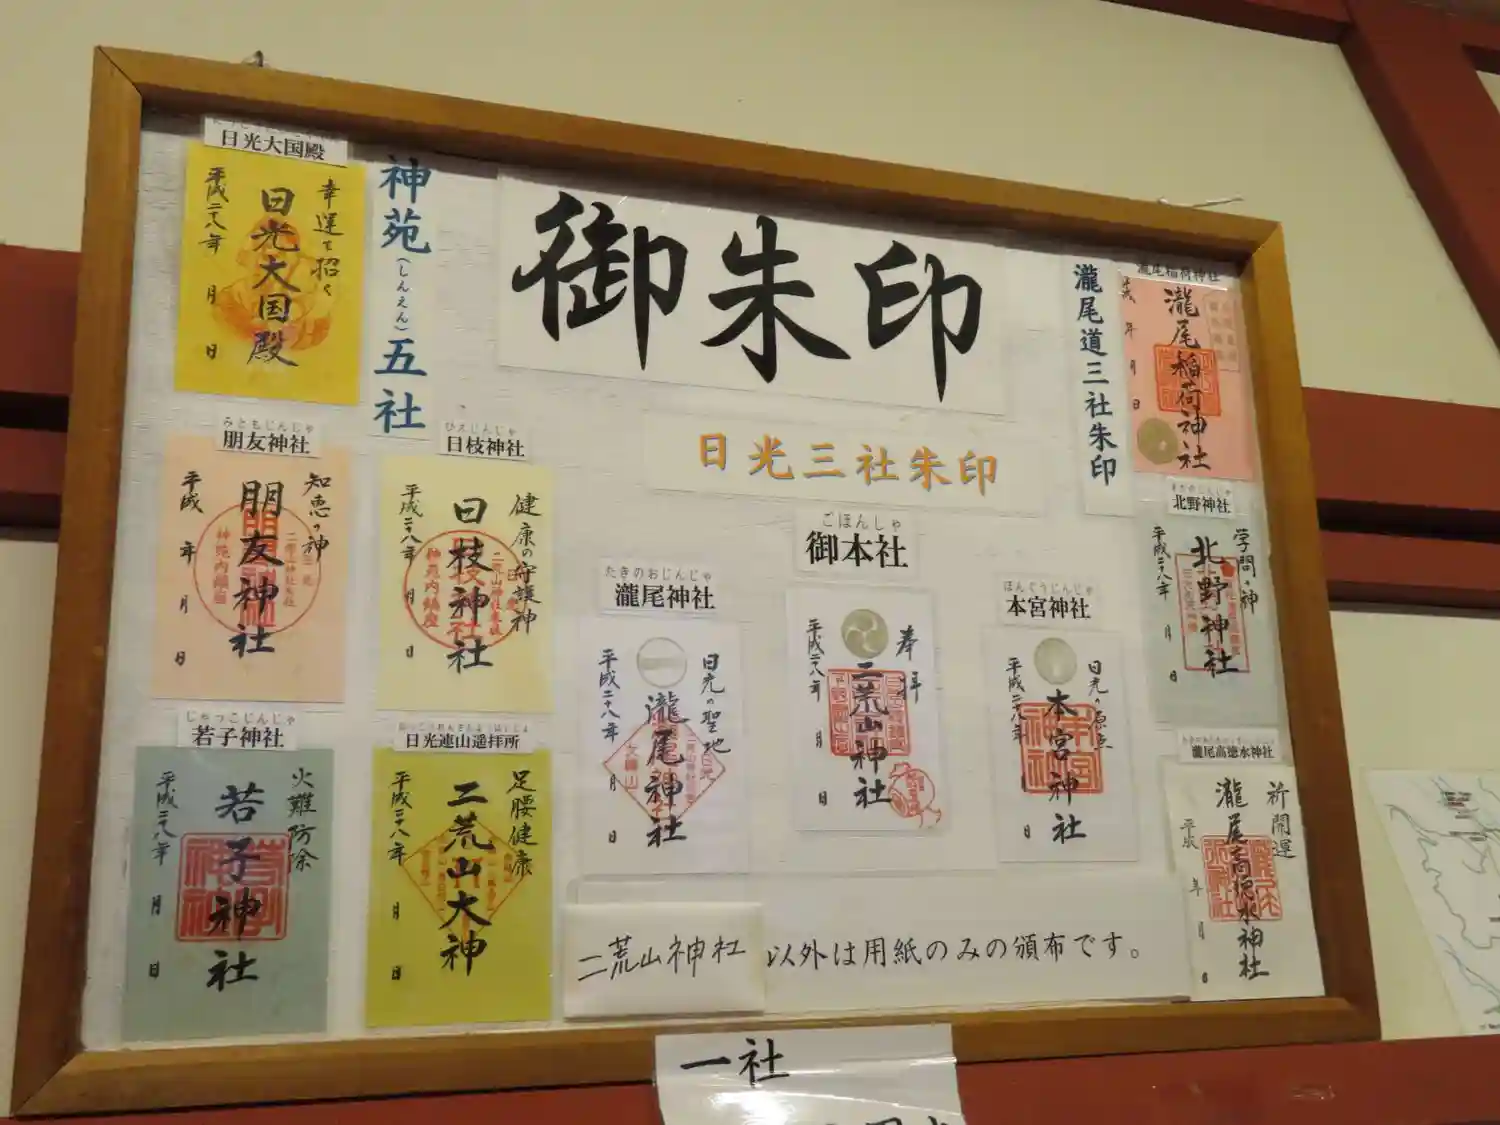 御朱印
日光三社朱印
神苑(しんえん)五社
瀧尾道三社朱印
日光大国殿
幸運を招く
日光大国殿
平成二十八年 月 日
みともじんじゃ
朋友神社
知恵の神
朋友神社
平成 年 月 日
ひえじんじゃ
日枝神社
健康の守護神
日枝神社
平成二十八年 月 日
じゃっこじんじゃ
若子神社
火難防除
若子神社
平成二十八年 月 日
日光連山遥拝所
足腰健康
二荒山大神
平成二十八年 月 日
たきのおじんじゃ
瀧尾神社
日光の聖地
瀧尾神社
平成二十八年 月 日
ごほんしゃ
御本社
奉拝
二荒山神社
平成二十八年 月 日
ほんぐうじんじゃ
本宮神社
日光の原点
本宮神社
平成二十八年 月 日
瀧尾稲荷神社
瀧尾稲荷神社
平成 年 月 日
きたのじんじゃ
北野神社
学問の神
北野神社
平成二十八年 月 日
瀧尾高徳水神社
祈開運
瀧尾高徳水神社
平成 年 月 日
二荒山神社 以外は用紙のみの頒布です。
一社